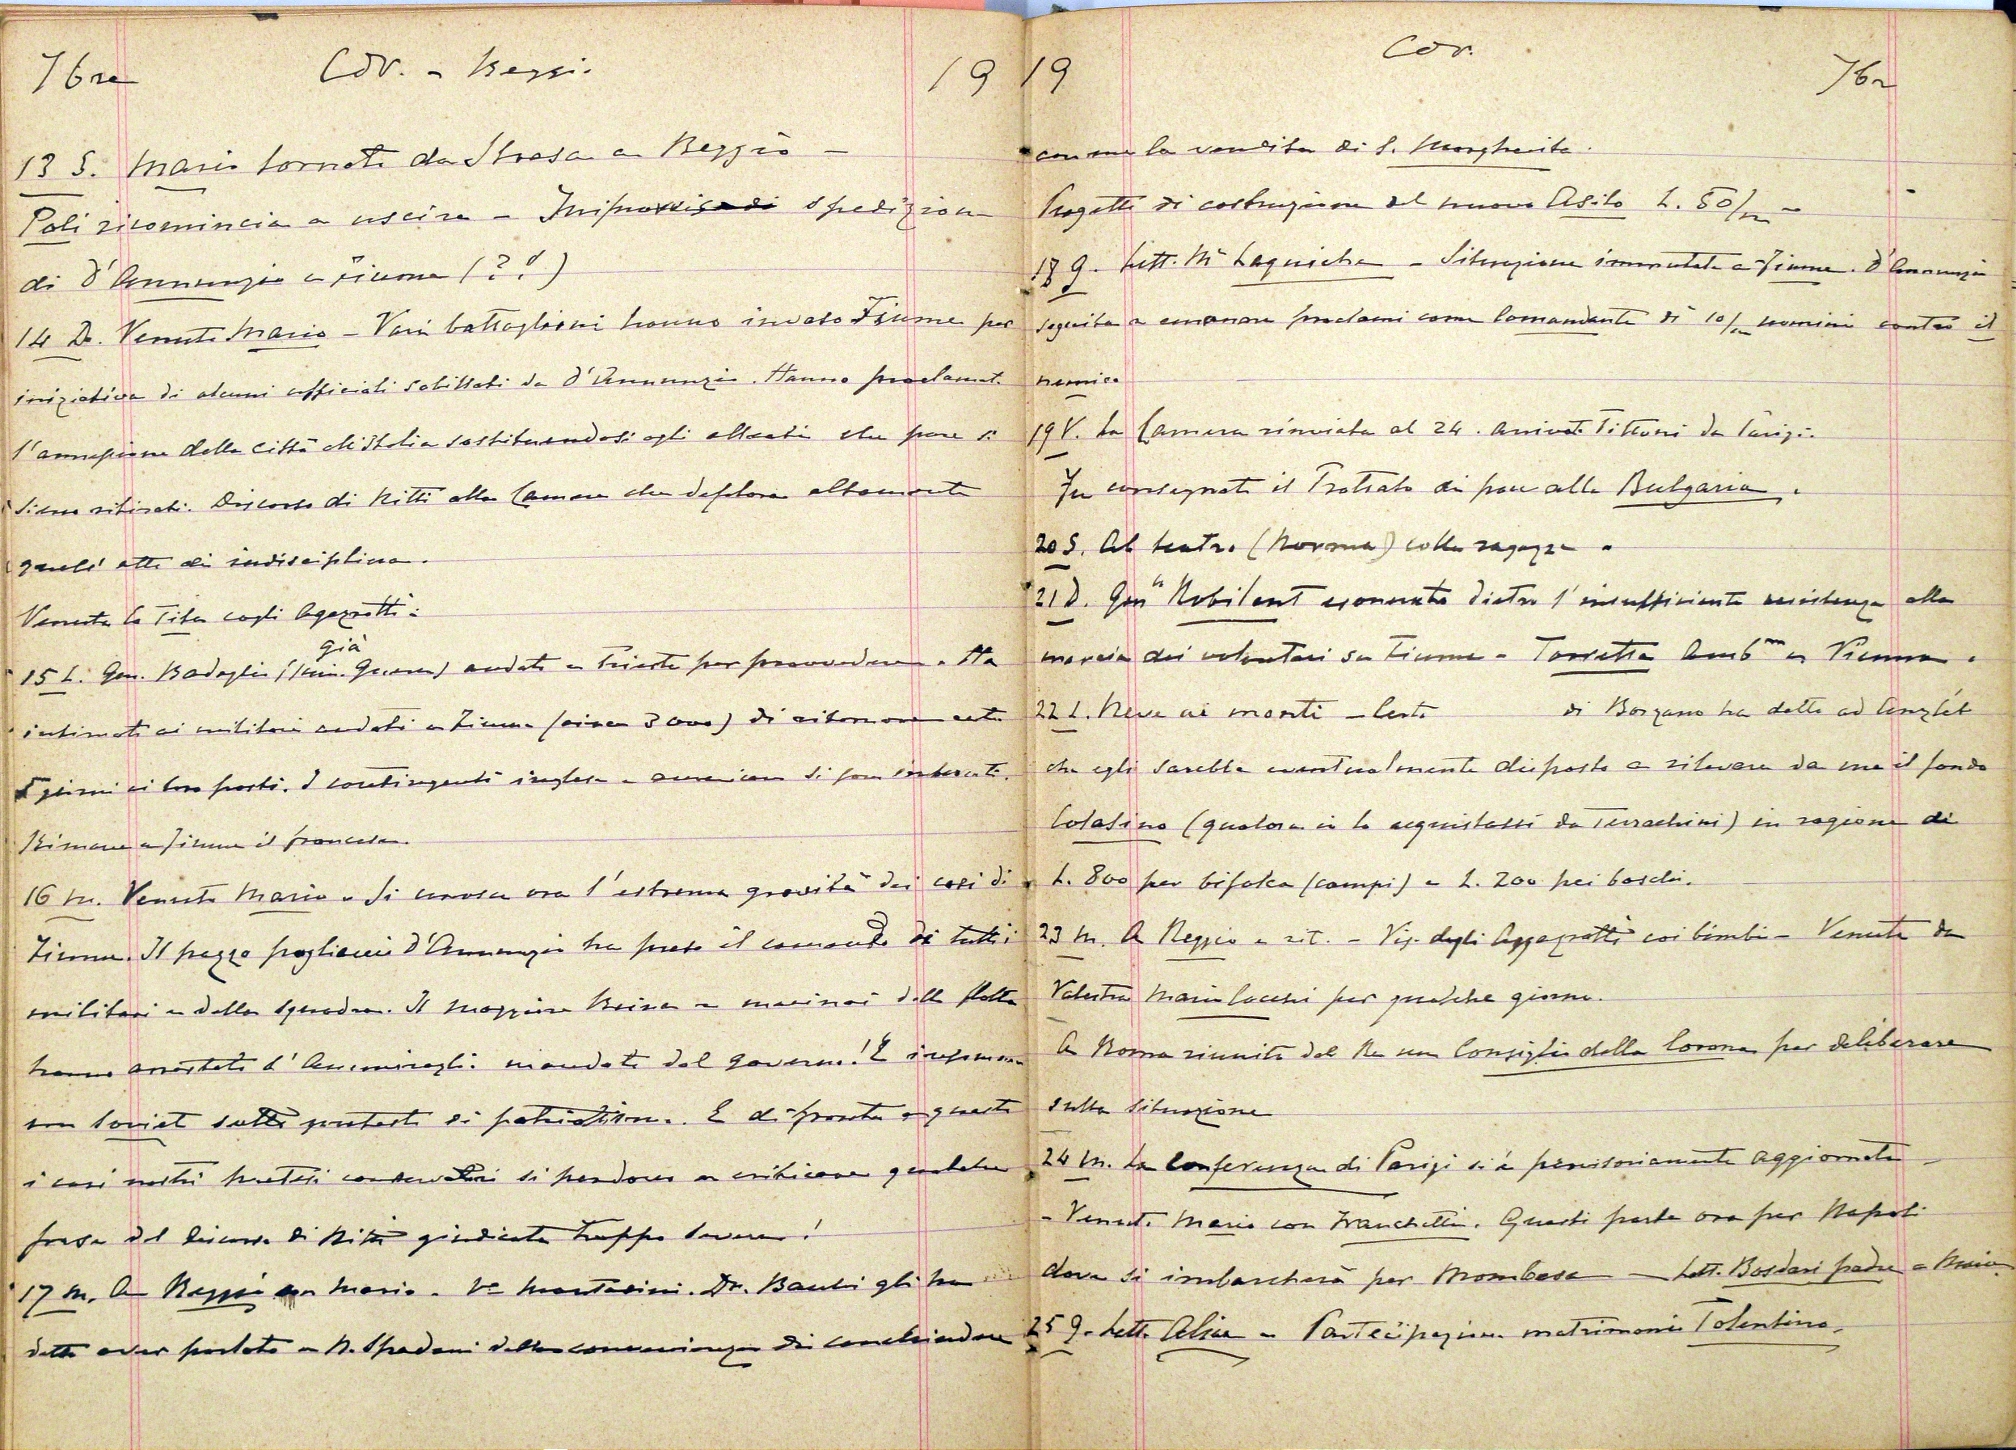 7bre Cov. - Reggio 19
13 S. Mario tornato da Stresa a Reggio -
Poli ricomincia a uscire - Improvvisa di spedizione
di D'Annunzio a Fiume (?!)
14 D. Venuto Mario - Vari battaglioni hanno invaso Fiume per
iniziativa di alcuni ufficiali sobillati da D'Annunzio. Hanno proclamato
l'annessione della città all'Italia sostituendosi agli alleati che pare si
siano ritirati. Discorso di Nitti alla Camera che deplora altamente
quest' atto di indisciplina.
Venuta la Tita cogli Agazzotti.
15 L. Gen. Badoglio (già Guerra) andato a Trieste per provvedere. Ha
intimato ai militari andati a Fiume (circa 3000) di ritornare entro
5 giorni ai loro posti. I contingenti inglese e americano si sono imbarcati.
Rimane a Fiume il francese.
16 M. Venuto Mario. Si conosce ora l'estrema gravità dei casi di
Fiume. Il pazzo pagliaccio D'Annunzio ha preso il comando di tutti i
militari e della squadra. Il maggiore Reina e marinai della flotta
hanno arrestato l'Ammiraglio mandato dal governo! È insomma
un soviet sotto pretesto di patriottismo. E di fronte a questo
i cari nostri pretesi conservatori si perdono a criticare qualche
frase del discorso di Nitti giudicata troppo severa!
17 M. A Reggio con Mario. Va Montasini. Dr. Bauli gli ha
detto aver parlato a N. Spadoni della convenienza di conchiudere
19 Cov. 7bre
con me la vendita di S. Margherita.
Progetto di costruzione del nuovo Asilo L. 50/m -
18 G. Lett. Mr Laguiche - Situazione immutata a Fiume. D'Annunzio
seguita a emanare proclami come Comandante di 10/m uomini contro il
nemico
19 V. La Camera rinviata al 24. Arrivato Tittoni da Parigi.
Fu consegnato il Trattato di pace alla Bulgaria.
20 S. Al teatro (Norma) colle ragazze.
21 D. Gen. Robilant esonerato dietro l'insufficiente resistenza alla
marcia dei volontari su Fiume - Torretta Amb. a Vienna.
22 L. Neve ai monti - Certo di Borzano ha detto ad
che egli sarebbe eventualmente disposto a rilevare da me il fondo
Colasino (qualora io lo acquistassi da Terrachini) in ragione di
L. 800 per bifolca (campi) e L. 200 pei boschi.
23 M. A Reggio e rit. - Vis. degli Aggazzotti coi bimbi - Venuta da
Valestra Maria per qualche giorno.
A Roma riunito dal Re un Consiglio della Corona per deliberare
sulla situazione
24 M. La Conferenza di Parigi si è provvisoriamente aggiornata -
- Venuto Mario con Franchetti. Questi parte ora per Napoli
dove si imbarcherà per Mombasa - Lett. Bosdari padre a
25 G. Lett. Alice - Partecipazione matrimonio Tolentino.